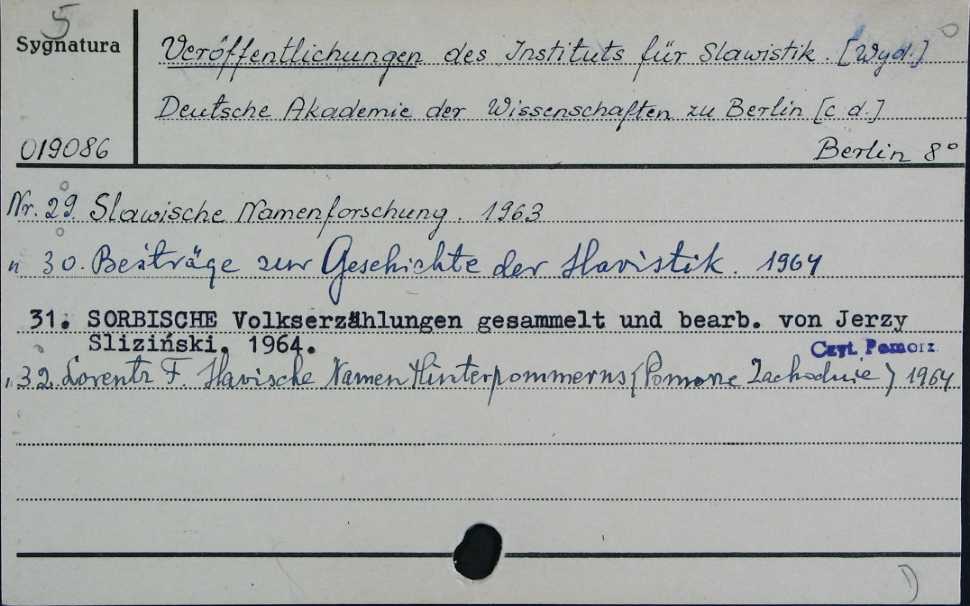 5
Sygnatura
Veröffentlichungen des Instituts für Slawistik. [Wyd.]
Deutsche Akademie der Wissenschaften zu Berlin [c d.]
019086
Berlin 8°
Nr. 29. Slawische Namenforschung. 1963
" 30. Beiträge zur Geschichte der Slavistik. 1964
31. SORBISCHE Volkserzählungen gesammelt und bearb. von Jerzy
Sliziński. 1964.
Czyt. Pomorz.
" 32. Lorentz F. Slavische Namen Hinterpommerns (Pomorze Zachodnie) 1964